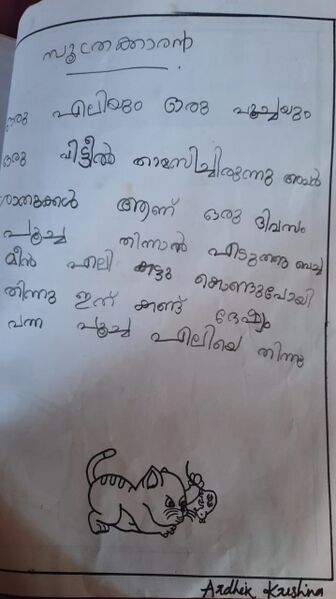 സൂത്രക്കാരൻ
ഒരു എലിയും ഒരു പൂച്ചയും
ഒരു വീട്ടിൽ താമസിച്ചിരുന്നു അവർ
ശത്രുക്കൾ ആണ് ഒരു ദിവസം
പൂച്ച തിന്നാൽ എടുത്തു വെച്ച
മീൻ എലി കട്ടു കൊണ്ടുപോയി
തിന്നു ഇത് കണ്ട് ദേഷ്യം
വന്ന പൂച്ച എലിയെ തിന്നു
Ardhik Krishna